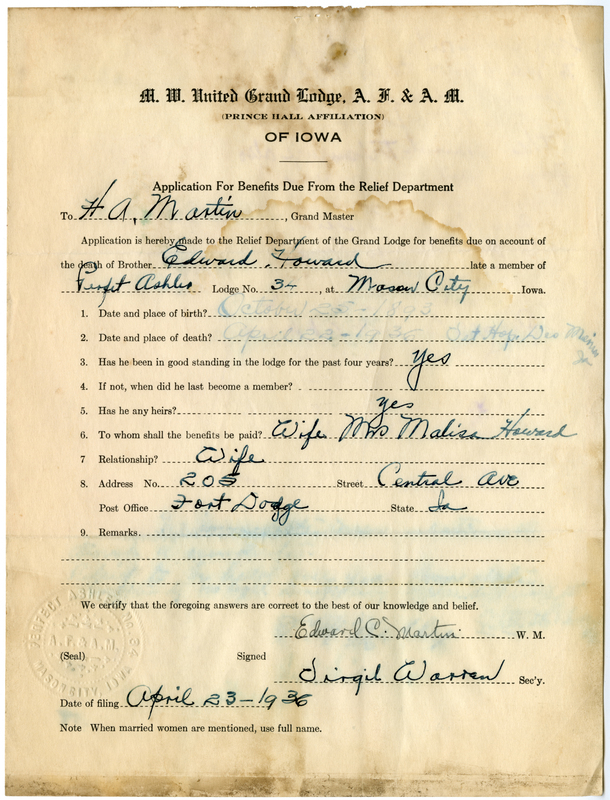 M. W. United Grand Lodge, A. F. & A. M.
(PRINCE HALL AFFILIATION)
OF IOWA
Application For Benefits Due From the Relief Department
To H A. Martin, Grand Master
Application is hereby made to the Relief Department of the Grand Lodge for benefits due on account of
the death of Brother Edward Howard late a member of
Perfit Ashler Lodge No. 34, at Mason City Iowa.
1. Date and place of birth? October 25 - 1893
2. Date and place of death? April 22 - 1936 Hosp Des Moines
Ia
3. Has he been in good standing in the lodge for the past four years? Yes
4. If not, when did he last become a member?
5. Has he any heirs? yes
6. To whom shall the benefits be paid? Wife Mrs Malisa Howard
7 Relationship? Wife
8. Address No. 205 Street Central Ave
Post Office Fort Dodge State Ia
9. Remarks.
We certify that the foregoing answers are correct to the best of our knowledge and belief.
Edward C. Martin W. M.
PERFECT ASHLER NO. 34
A.F.&A.M.
(Seal) Signed
Virgil Warren Sec'y.
Date of filing April 23-1936
Note When married women are mentioned, use full name.